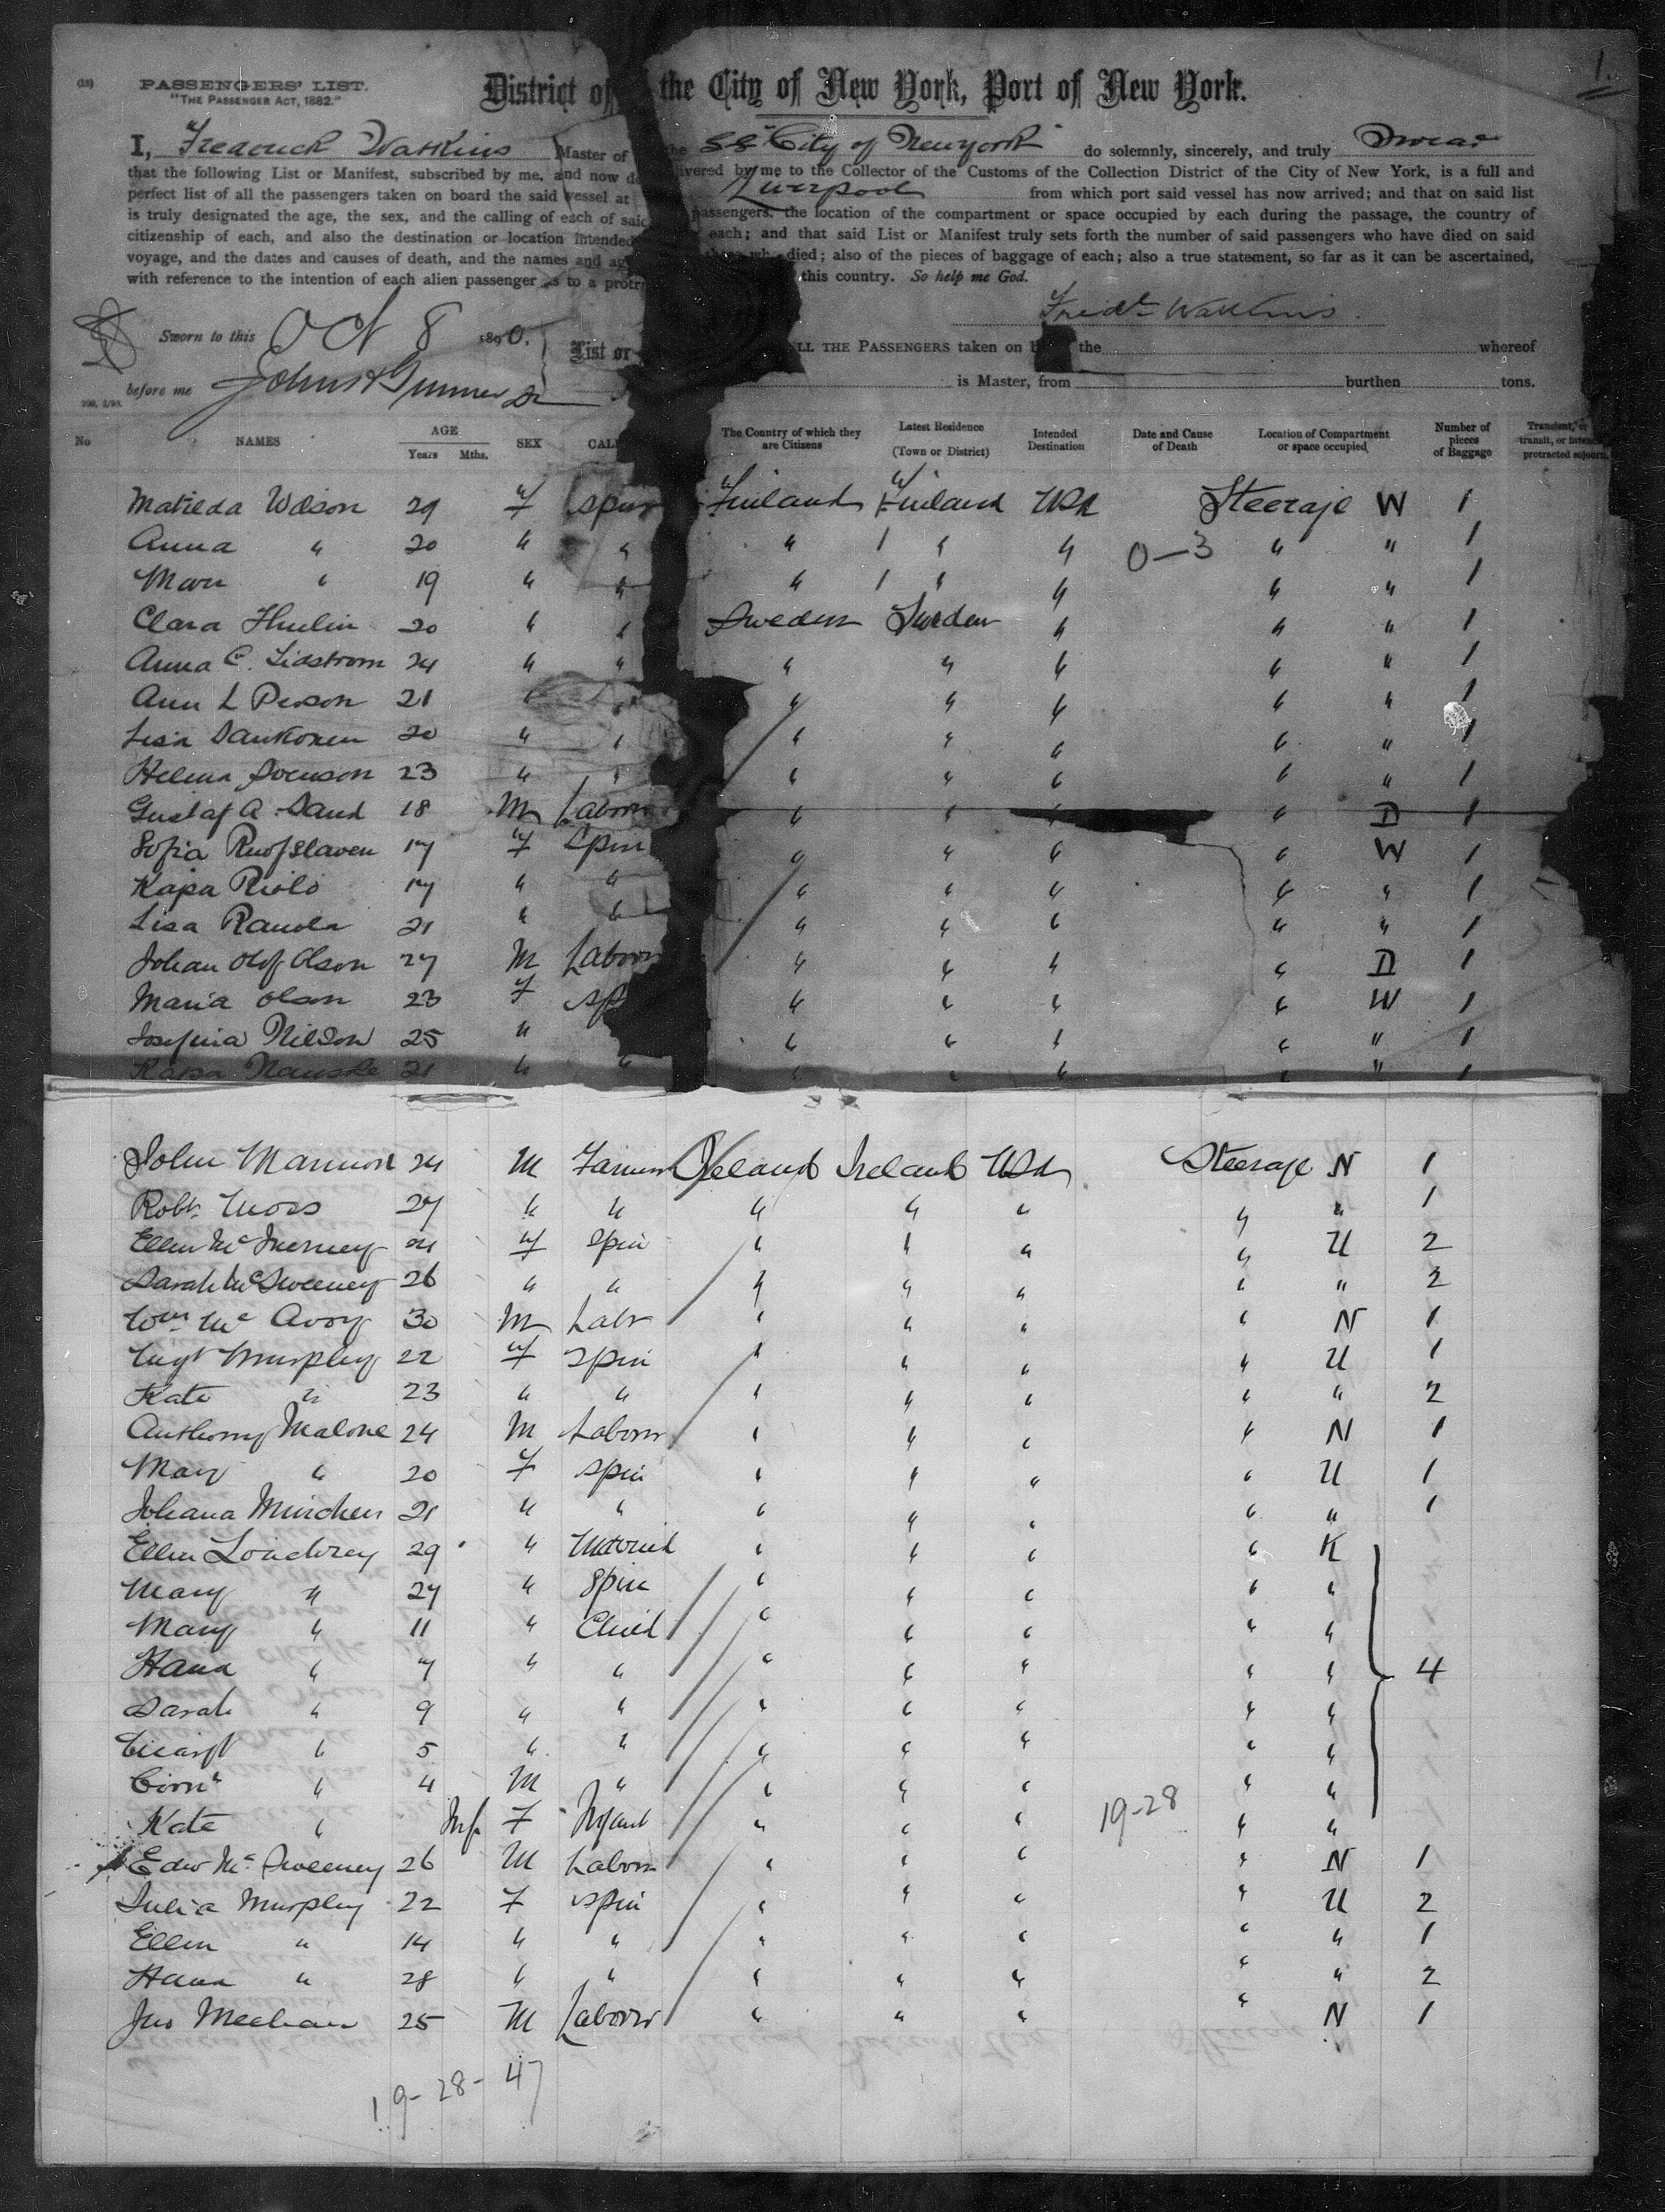 (18) PASSENGERS' LIST. 1.
"THE PASSENGER ACT, 1882."
District of the City of New York, Port of New York.
I, Frederick Watkins Master of the SS "City of Newyork" do solemnly, sincerely, and truly Swear
that the following List or Manifest, subscribed by me, and now de ivered by me to the Collector of the Customs of the Collection District of the City of New York, is a full and
perfect list of all the passengers taken on board the said vessel at Liverpool from which port said vessel has now arrived; and that on said list
is truly designated the age, the sex, and the calling of each of said passengers, the location of the compartment or space occupied by each during the passage, the country of
citizenship of each, and also the destination or location intended each; and that said List or Manifest truly sets forth the number of said passengers who have died on said
voyage, and the dates and causes of death, and the names and ag who died; also of the pieces of baggage of each; also a true statement, so far as it can be ascertained,
with reference to the intention of each alien passenger as to a protr this country. So help me God.
Fredk Watkins.
Sworn to this Oct 8 1890,
List or LL THE PASSENGERS taken on the whereof
before me is Master, from burthen tons.
No NAMES AGE Years Mths. SEX CAL The Country of which they are Citizens Latest Residence (Town or District) Intended Destination Date and Cause of Death Location of Compartment or space occupied Number of pieces of Baggage
Matilda Wilson 29 F Spin Finland Finland USA Steerage W 1
Anna " 20 " " " " " 0-3 " " 1
" 19 " " " " " " " 1
Clara 20 " " Sweden Sweden " " " 1
Anna C. Lidstrom 24 " " " " " " " 1
Ann L Person 21 " " " " " " " 1
Lisa 20 " " " " " " " 1
Helena 23 " " " " " " " 1
Gustaf A Sand 18 M Labore " " " D 1
Sofia 17 F Spin " " " " W 1
Kajsa 17 " " " " " " " 1
Lisa 21 " " " " " " " 1
Johan Olof Olson 27 M Labore " " " " D 1
Maria Olson 23 F Sp " " " " W 1
Josefina Nilson 25 " " " " " " 1
Kajsa 21 " " " " " " " 1
John Mannion 24 M Farmer Ireland Ireland USA Steerage N 1
Robt. Moss 27 " " " " " " " 1
Ellen McInerney 21 F Spin " " " " U 2
Sarah McSweeney 26 " " " " " " " 2
Wm. Mc Avoy 30 M Labr " " " " N 1
Mgt Murphy 22 F Spin " " " " U 1
Kate " 23 " " " " " " " 2
Anthony Malone 24 M Laborer " " " " N 1
Mary " 20 F Spin " " " " U 1
Johana 21 " " " " " " " 1
Ellen Londrey 29 " " " " " K
Mary " 27 " Spin " " " " "
Mary " 11 " Child " " " " "
Hana " 7 " " " " " " " 4
Sarah " 9 " " " " " " "
Margt " 5 " " " " " " "
" 4 M " " " " " "
Kate " Inf F Infant " " " 19-28 " "
Edw Mc Sweeney 26 M Laborer " " " " N 1
Julia Murphy 22 F Spin " " " " U 2
Ellen " 14 " " " " " " " 1
Hana " 28 " " " " " " " 2
Jno Meehan 25 M Laborer " " " " N 1
19-28-47